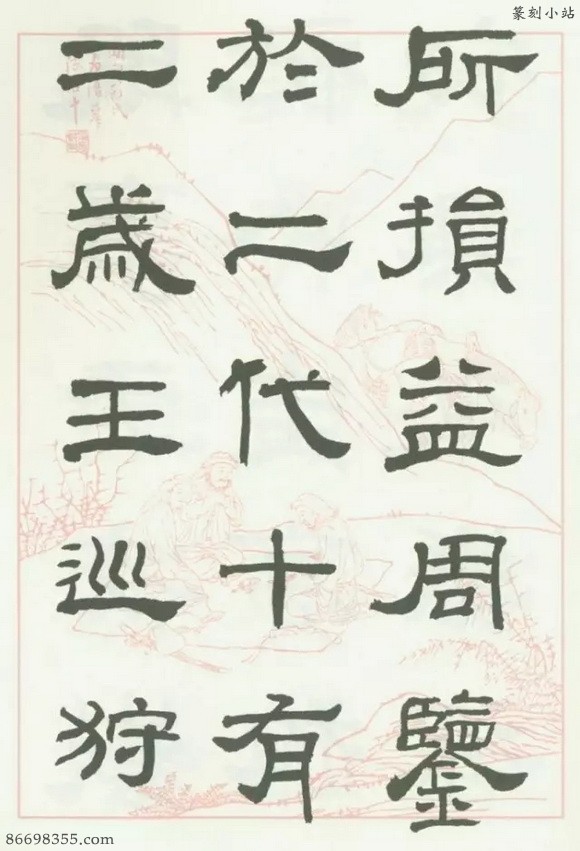 篆刻小站
所損益周鑒
於二代十有
二歲王巡狩
86698355.com